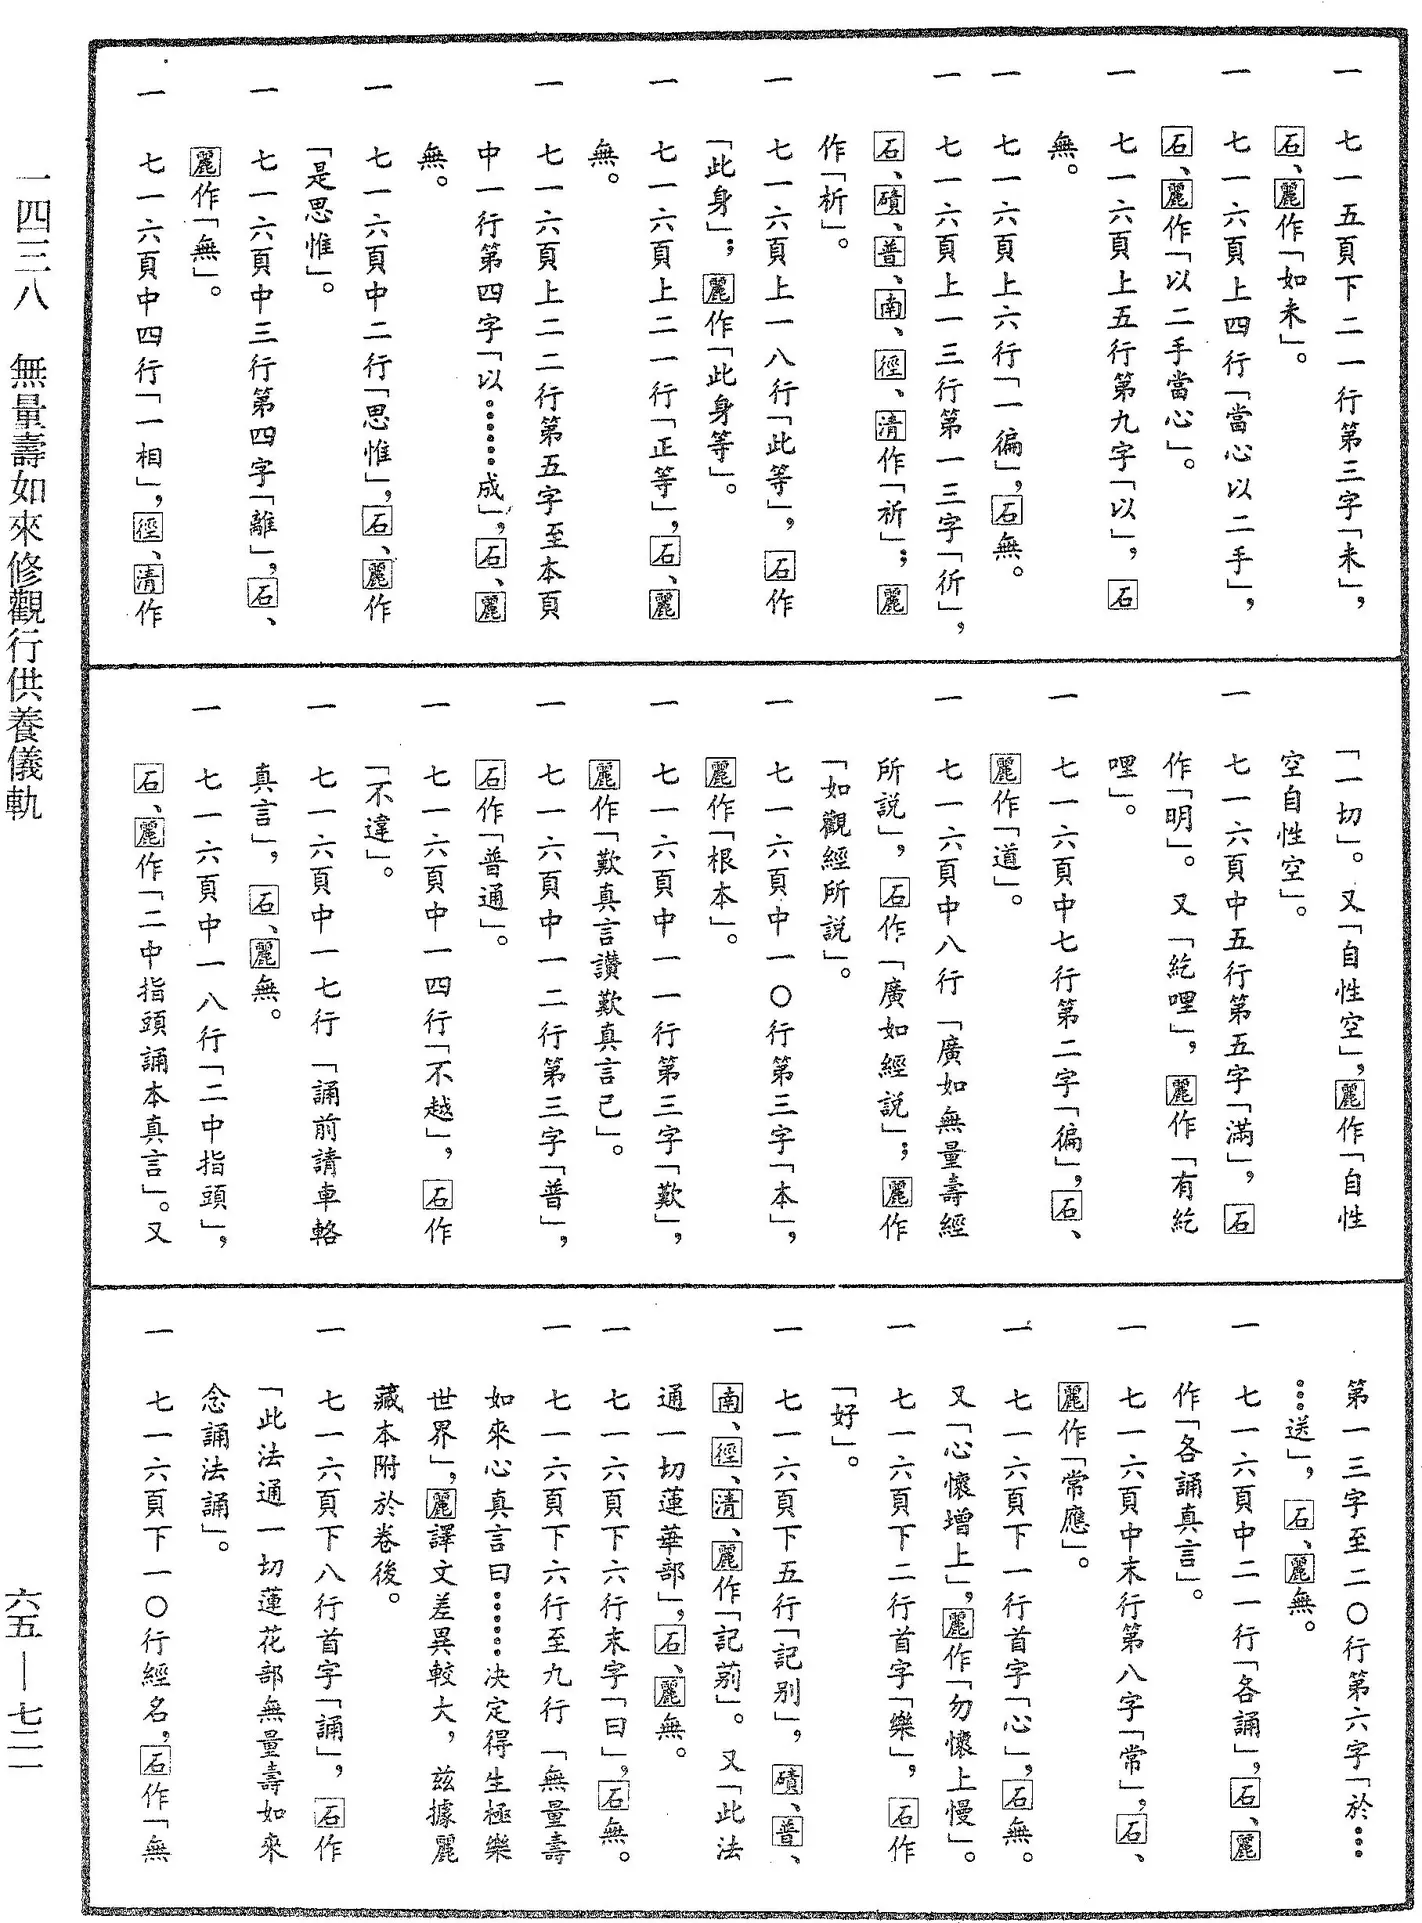 一　七一五頁下二一行第三字「未」，
石、麗作「如未」。
一　七一六頁上四行「當心以二手」，
石、麗作「以二手當心」。
一　七一六頁上五行第九字「以」，石
無。
一　七一六頁上六行「一徧」，石無。
一　七一六頁上一三行第一三字「㣔」，
石、磧、普、南、徑、清作「祈」；麗
作「析」。
一　七一六頁上一八行「此等」，石作
「此身」；麗作「此身等」。
一　七一六頁上二一行「正等」，石、麗
無。
一　七一六頁上二二行第五字至本頁
中一行第四字「以……成」，石、麗
無。
一　七一六頁中二行「思惟」，石、麗作
「是思惟」。
一　七一六頁中三行第四字「離」，石、
麗作「無」。
一　七一六頁中四行「一相」，徑、清作
「一切」。又「自性空」，麗作「自性
空自性空」。
一　七一六頁中五行第五字「滿」，石
作「明」。又「紇哩」，麗作「有紇
哩」。
一　七一六頁中七行第二字「徧」，石、
麗作「道」。
一　七一六頁中八行「廣如無量壽經
所說」，石作「廣如經說」；麗作
「如觀經所說」。
一　七一六頁中一〇行第三字「本」，
麗作「根本」。
一　七一六頁中一一行第三字「歎」，
麗作「歎真言讚歎真言已」。
一　七一六頁中一二行第三字「普」，
石作「普通」。
一　七一六頁中一四行「不越」，石作
「不違」。
一　七一六頁中一七行「誦前請車輅
真言」，石、麗無。
一　七一六頁中一八行「二中指頭」，
石、麗作「二中指頭誦本真言」。又
第一三字至二〇行第六字「於…
…送」，石、麗無。
一　七一六頁中二一行「各誦」，石、麗
作「各誦真言」。
一　七一六頁中末行第八字「常」，石、
麗作「常應」。
一　七一六頁下一行首字「心」，石無。
又「心懷增上」，麗作「勿懷上慢」。
一　七一六頁下二行首字「樂」，石作
「好」。
一　七一六頁下五行「記別」，磧、普、
南、徑、清、麗作「記莂」。又「此法
通一切蓮華部」，石、麗無。
一　七一六頁下六行末字「曰」，石無。
一　七一六頁下六行至九行「無量壽
如來心真言曰……決定得生極樂
世界」，麗譯文差異較大，茲據麗
藏本附於卷後。
一　七一六頁下八行首字「誦」，石作
「此法通一切蓮花部無量壽如來
念誦法誦」。
一　七一六頁下一〇行經名，石作「無
一四三八　無量壽如來修觀行供養儀軌
六五—七二一